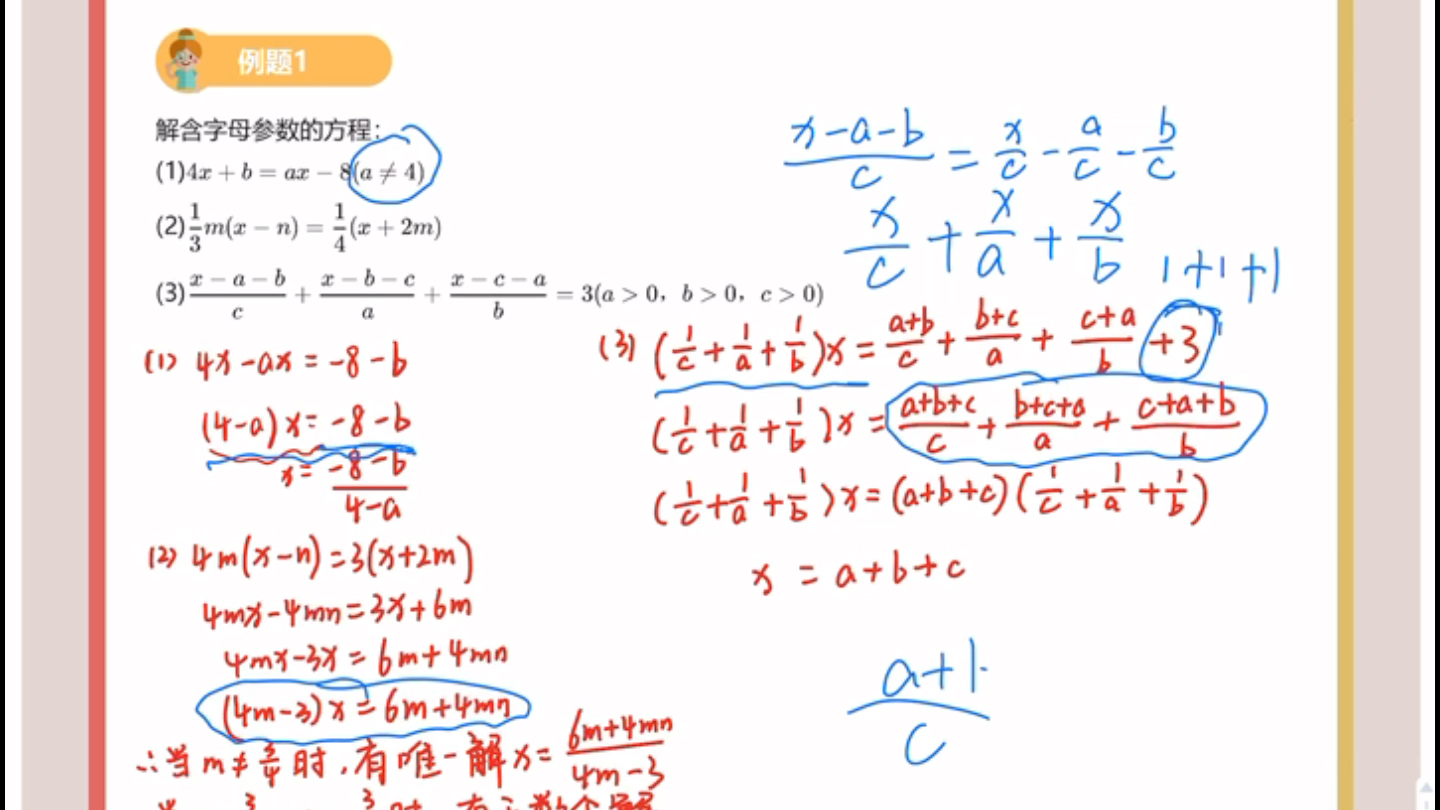 例题1
解含字母参数的方程:
(1)4x + b = ax − 8(a ≠ 4)
(2)1/3 m(x − n) = 1/4 (x + 2m)
(3)(x − a − b)/c + (x − b − c)/a + (x − c − a)/b = 3(a > 0, b > 0, c > 0)
(x-a-b)/c = x/c - a/c - b/c
x/c + x/a + x/b
1+1+1
(1) 4x-ax=-8-b
(4-a)x=-8-b
x=(-8-b)/(4-a)
(2) 4m(x-n)=3(x+2m)
4mx-4mn=3x+6m
4mx-3x=6m+4mn
(4m-3)x=6m+4mn
∴当m≠3/4时,有唯一解x=(6m+4mn)/(4m-3)
(3) (1/c+1/a+1/b)x=(a+b)/c+(b+c)/a+(c+a)/b+3
(1/c+1/a+1/b)x=(a+b+c)/c+(b+c+a)/a+(c+a+b)/b
(1/c+1/a+1/b)x=(a+b+c)(1/c+1/a+1/b)
x=a+b+c